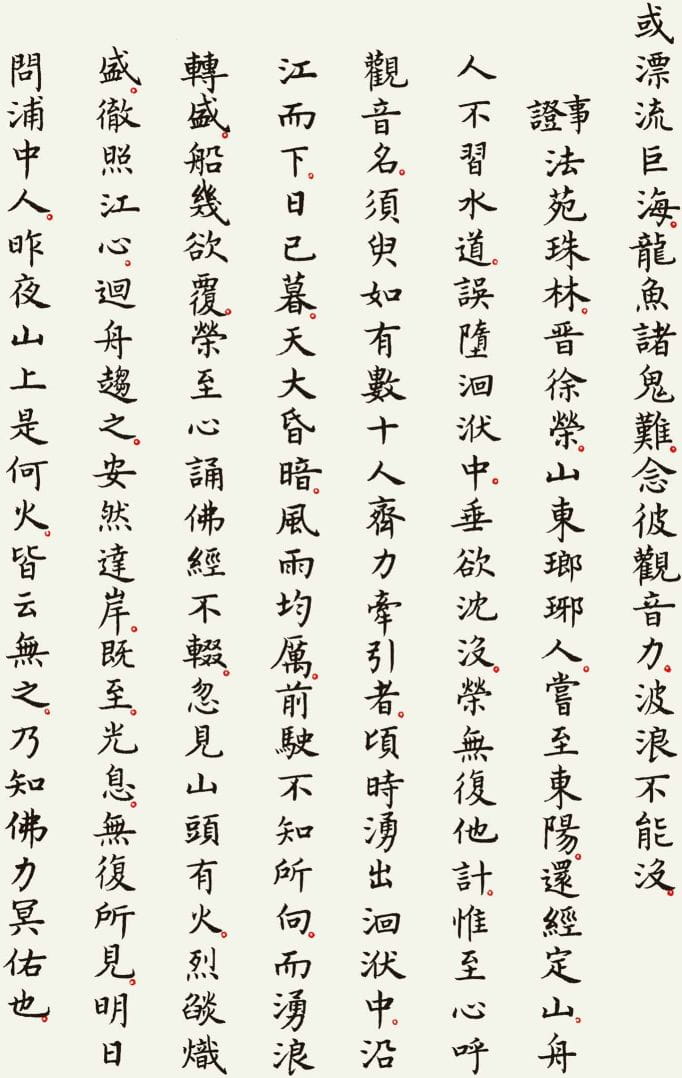 或漂流巨海。龍魚諸鬼難。念彼觀音力。波浪不能沒。
事證 法苑珠林。晉徐榮。山東瑯琊人。嘗至東陽。還經定山。舟
人不習水道。誤墮洄洑中。垂欲沈沒。榮無復他計。惟至心呼
觀音名。須臾如有數十人齊力牽引者。頃時湧出洄洑中。沿
江而下。日已暮。天大昏暗。風雨均厲。前駛不知所向。而湧浪
轉盛。船幾欲覆。榮至心誦佛經不輟。忽見山頭有火。烈燄熾
盛。徹照江心。迴舟趨之。安然達岸。既至。光息。無復所見。明日
問浦中人。昨夜山上是何火。皆云無之。乃知佛力冥佑也。